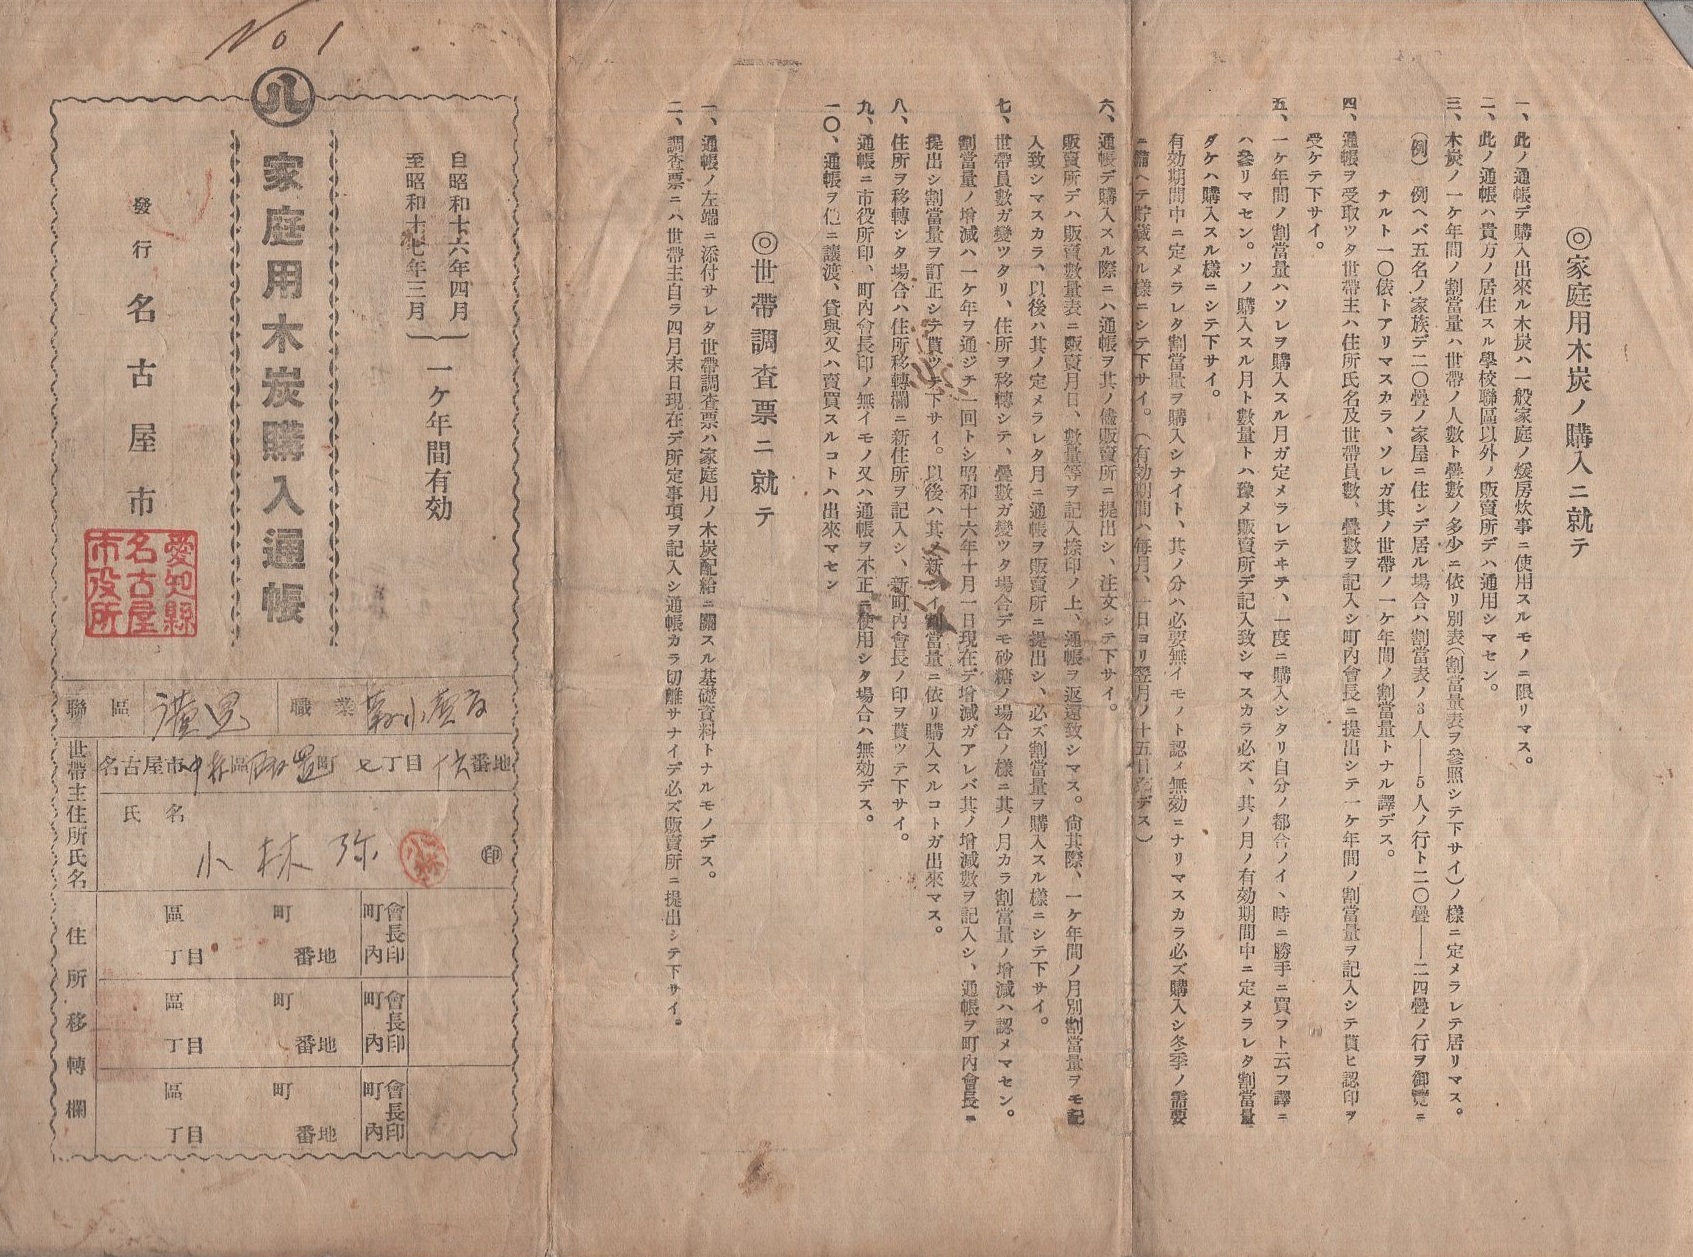 ◎家庭用木炭ノ購入ニ就テ
一、此ノ通帳デ購入出來ル木炭ハ一般家庭ノ煖房炊事ニ使用スルモノニ限リマス。
二、此ノ通帳ハ貴方ノ居住スル學校聯區以外ノ販賣所デハ通用シマセン。
三、木炭ノ一ケ年間ノ割當量ハ世帶ノ人數ト疊數ノ多少ニ依リ別表(割當量表ヲ參照シテ下サイ)ノ樣ニ定メラレテ居リマス。
(例) 例ヘバ五名ノ家族デ二〇疊ノ家屋ニ住ンデ居ル場合ハ割當表ノ3人——5人ノ行ト二〇疊——二四疊ノ行ヲ御覽ニ
ナルト一〇俵トアリマスカラ、ソレガ其ノ世帶ノ一ケ年間ノ割當量トナル譯デス。
四、通帳ヲ受取ツタ世帶主ハ住所氏名及世帶員數、疊數ヲ記入シ町內會長ニ提出シテ一ケ年間ノ割當量ヲ記入シテ貰ヒ認印ヲ
受ケテ下サイ。
五、一ケ年間ノ割當量ハソレヲ購入スル月ガ定メラレテヰテ、一度ニ購入シタリ自分ノ都合ノイヽ時ニ勝手ニ買フト云フ譯ニ
ハ參リマセン。ソノ購入スル月ト數量トハ豫メ販賣所デ記入致シマスカラ必ズ、其ノ月ノ有効期間中ニ定メラレタ割當量
ダケハ購入スル樣ニシテ下サイ。
有効期間中ニ定メラレタ割當量ヲ購入シナイト、其ノ分ハ必要無イモノト認メ無効ニナリマスカラ必ズ購入シ冬季ノ需要
ニ備ヘテ貯藏スル樣ニシテ下サイ。(有効期間ハ每月、一日ヨリ翌月ノ十五日迄デス)
六、通帳デ購入スル際ニハ通帳ヲ其ノ儘販賣所ニ提出シ、注文シテ下サイ。
販賣所デハ販賣數量表ニ販賣月日、數量等ヲ記入捺印ノ上、通帳ヲ返還致シマス。尙其際、一ケ年間ノ月別割當量ヲモ記
入致シマスカラ、以後ハ其ノ定メラレタ月ニ通帳ヲ販賣所ニ提出シ、必ズ割當量ヲ購入スル樣ニシテ下サイ。
七、世帶員數ガ變ツタリ、住所ヲ移轉シテ、疊數ガ變ツタ場合デモ砂糖ノ場合ノ樣ニ其ノ月カラ割當量ノ增減ハ認メマセン。
割當量ノ增減ハ一ケ年ヲ通ジテ一回トシ昭和十六年十月一日現在デ增減ガアレバ其ノ增減數ヲ記入シ、通帳ヲ町內會長ニ
提出シ割當量ヲ訂正シテ貰ツテ下サイ。以後ハ其ノ新シイ割當量ニ依リ購入スルコトガ出來マス。
八、住所ヲ移轉シタ場合ハ住所移轉欄ニ新住所ヲ記入シ、新町內會長ノ印ヲ貰ツテ下サイ。
九、通帳ニ市役所印、町內會長印ノ無イモノ又ハ通帳ヲ不正ニ使用シタ場合ハ無効デス。
一〇、通帳ヲ他ニ讓渡、貸與又ハ賣買スルコトハ出來マセン
◎世帶調査票ニ就テ
一、通帳ノ左端ニ添付サレタ世帶調査票ハ家庭用ノ木炭配給ニ關スル基礎資料トナルモノデス。
二、調査票ニハ世帶主自ラ四月末日現在デ所定事項ヲ記入シ通帳カラ切離サナイデ必ズ販賣所ニ提出シテ下サイ。
No 1
自昭和十六年四月
至昭和十七年三月
一ケ年間有効
八
家庭用木炭購入通帳
發行 名古屋市
愛知縣
名古屋
市役所
聯區
職業
世帶主住所氏名
名古屋市中村區 町七丁目 番地
氏名
小林弥
小林
印
住所移轉欄
區 町
丁目 番地
町內會長印
區 町
丁目 番地
町內會長印
區 町
丁目 番地
町內會長印